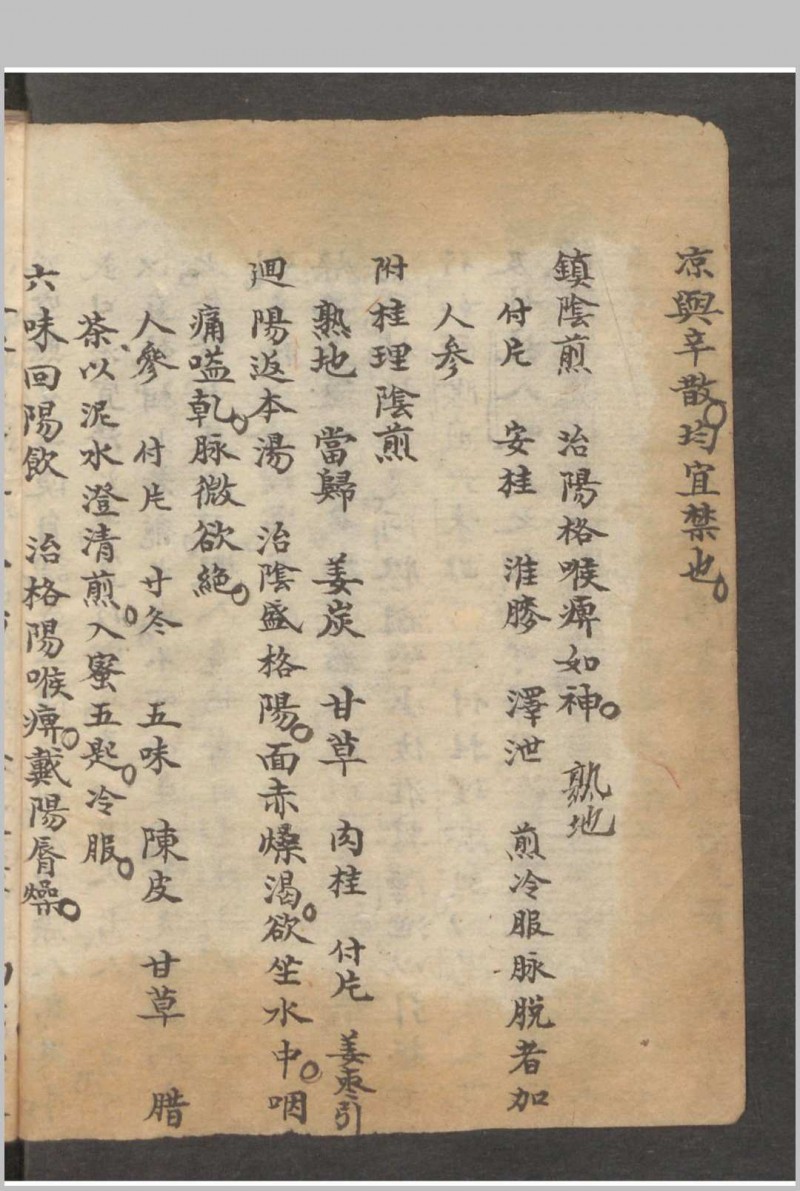 凉與辛散。均宜禁也。
鎮陰煎　治陽格喉痺如神。　熟地
付片　安桂　淮膝　澤泄　煎冷服脉脱者加
人参
附桂理陰煎
熟地　當歸　姜炭　甘草　肉桂　付片　姜棗引
迴陽返本湯　治陰盛格陽。面赤燥渴。欲坐水中。咽
痛嗌乹。脉微欲絶。
人參　付片　寸冬　五味　陳皮　甘草　腊
茶以泥水澄清煎。入蜜五匙。冷服。
六味回陽飲　治格陽喉痺。戴陽唇燥。